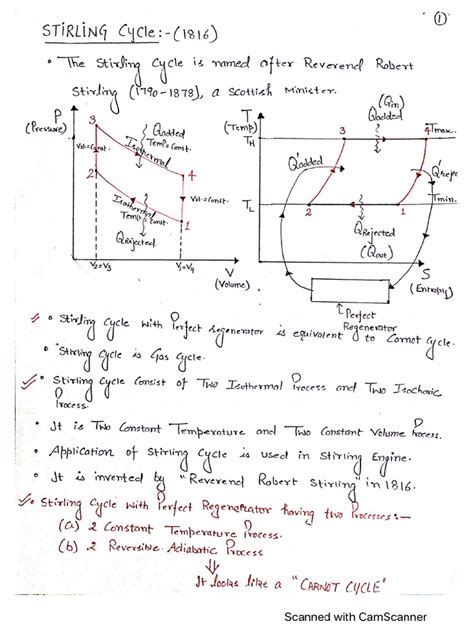 ①
STIRLING Cycle:-(1816)
• The Stirling Cycle is named after Reverend Robert
Stirling (1790-1878), a Scottish Minister.
P
(Pressure)
3
Qadded
Temp=Const.
Isothermal
Vol=Const.
4
2
Vol=Const.
Isothermal
Temp=Const.
1
QRejected
V2=V3
V1=V4
V
(Volume)
T
(Temp)
(Qin)
Qadded
TH
3
4
Tmax.
Q'added
TL
2
1
Tmin.
QRejected
(Qout)
S
(Entropy)
Perfect
Regenerator
• Stirling Cycle with Perfect regenerator is equivalent to Carnot Cycle.
• Stirling Cycle is Gas Cycle.
• Stirling Cycle Consist of Two Isothermal Process and Two Isochoric
Process.
• It is Two Constant Temperature and Two Constant Volume Process.
• Application of Stirling Cycle is used in Stirling Engine.
• It is invented by "Reverend Robert Stirling" in 1816.
• Stirling Cycle with Perfect Regenerator having two Processes:-
(a) 2 Constant Temperature Process.
(b) 2 Reversible Adiabatic Process
It looks like a "CARNOT CYCLE"
Scanned with CamScanner